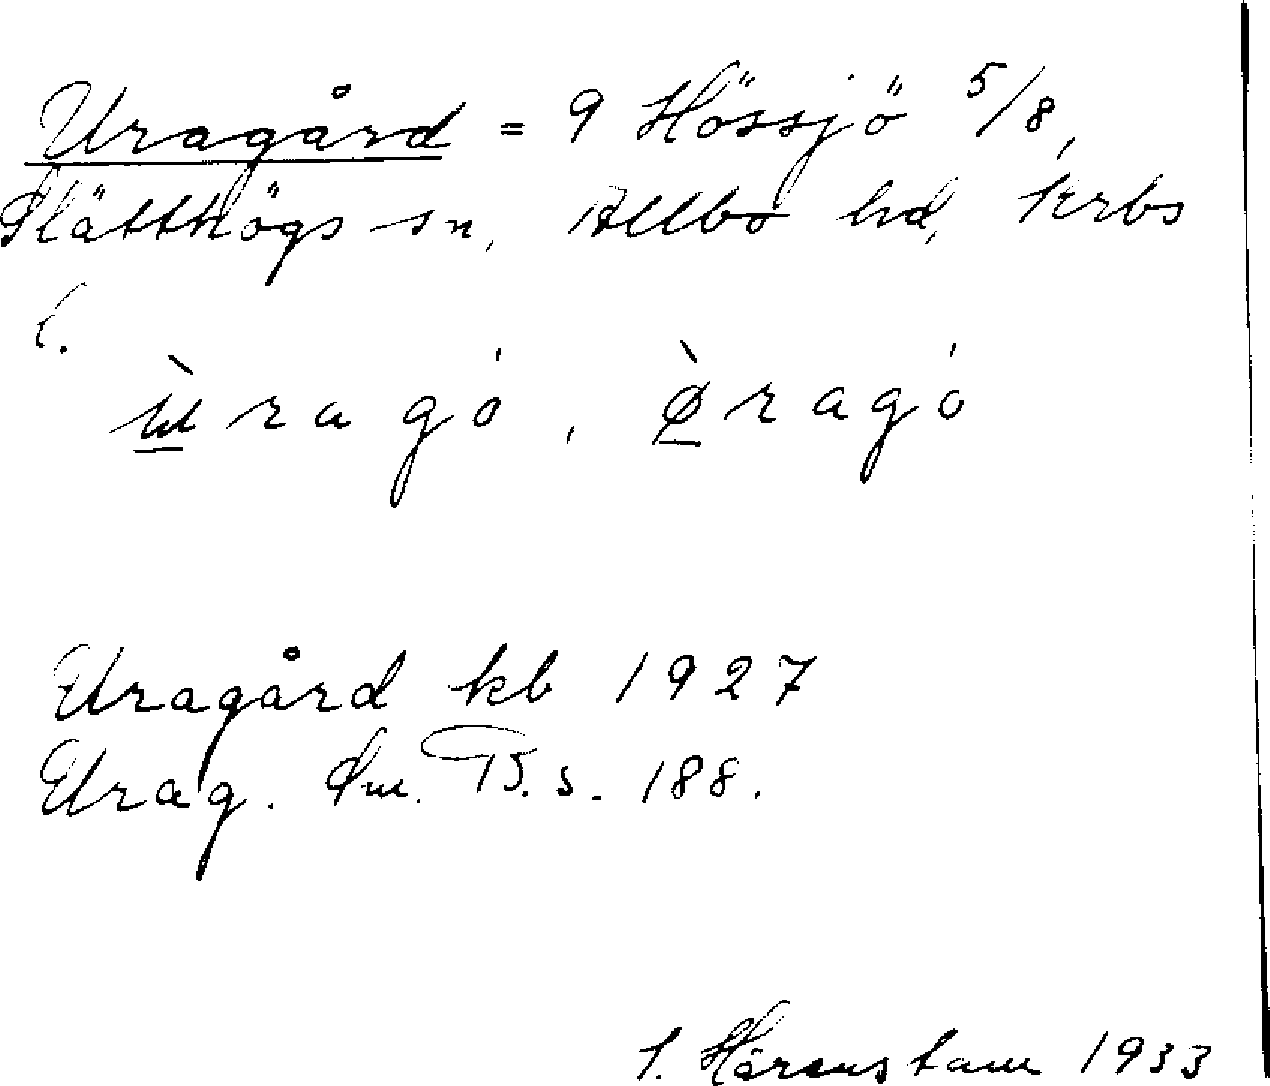 Uragård = 9 Hössjö 5/8,
Slätthögs sn, Allbo hd, Krbs
l.
ùragó, ø̀ragó
Uragård kb 1927
Urag. Sm. TB. s. 188.
S. Härenstam 1933